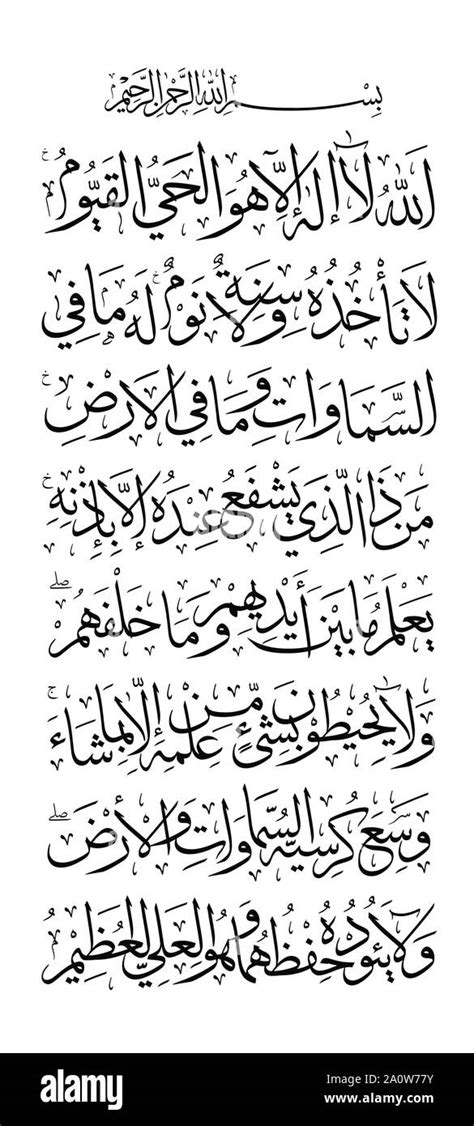 بِسْمِ اللهِ الرَّحْمٰنِ الرَّحِيْمِ
اَللهُ لَا إِلٰهَ إِلَّا هُوَ الْحَيُّ الْقَيُّومُ
لَا تَأْخُذُهُ سِنَةٌ وَلَا نَوْمٌ لَهُ مَا فِي
السَّمَاوَاتِ وَمَا فِي الْأَرْضِ
مَن ذَا الَّذِي يَشْفَعُ عِنْدَهُ إِلَّا بِإِذْنِهِ
يَعْلَمُ مَا بَيْنَ أَيْدِيهِمْ وَمَا خَلْفَهُمْ
وَلَا يُحِيطُونَ بِشَيْءٍ مِّنْ عِلْمِهِ إِلَّا بِمَا شَاءَ
وَسِعَ كُرْسِيُّهُ السَّمَاوَاتِ وَالْأَرْضَ
وَلَا يَئُودُهُ حِفْظُهُمَا وَهُوَ الْعَلِيُّ الْعَظِيمُ
alamy
Image ID: 2A0W77Y
www.alamy.com